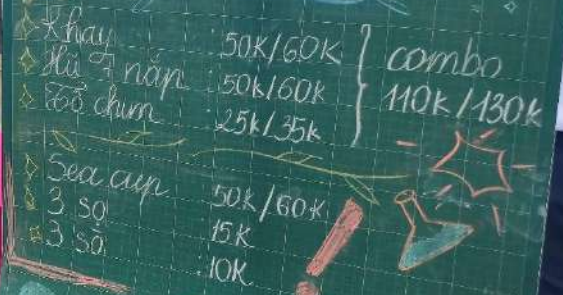 Khay : 50K/60K
Hũ nắp : 50k/60k
Tổ chim : 25k/35k
combo
110k/130k
Sea cup 50k/60k
3 sọ 15K
3 sò : 10K